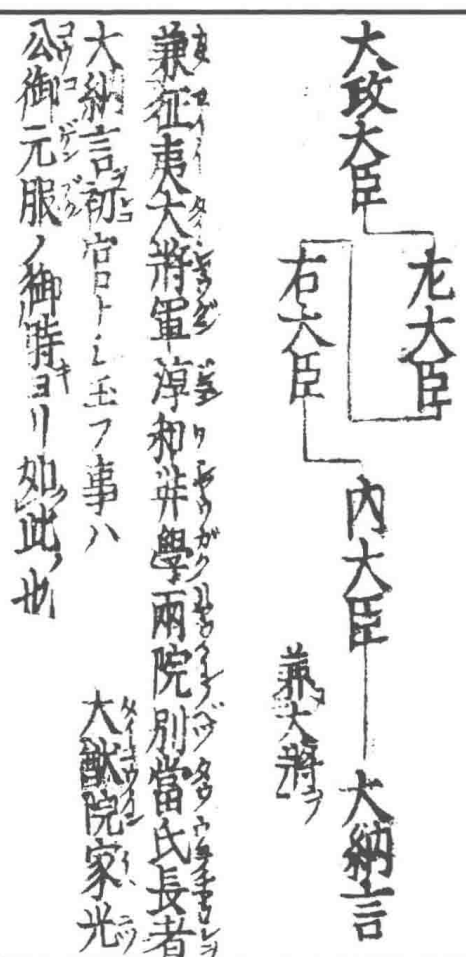 大政大臣
左大臣
右大臣
内大臣
大納言
兼大将
兼征夷大將軍淳和弉學兩院別當氏長者
大納言初官トシ玉フ事ハ
大猷院家光
公御元服ノ御時ヨリ如此也